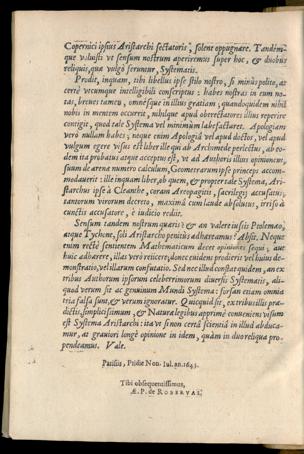 Copernici ipsius Aristarchi sectatoris, solent oppugnare. Tandem-
que voluisti vt sensum nostrum aperiremus super hoc, & duobus
reliquis, quæ vulgò feruntur, Systematis.
Prodit, inquam, tibi libellus ipse stilo nostro, si minùs polito, at
certè vtcumque intelligibili conscriptus: habes nostras in eum no-
tas, breues tamen, omnésque in illius gratiam; quandoquidem nihil
nobis in mentem occurrit, nihilque apud obtrectatores illius reperire
contigit, quod tale Systema vel minimùm labefactaret. Apologiam
verò nullam habes; neque enim Apologiâ vel apud doctos, vel apud
vulgum egere visus est liber ille qui ab Archimede perlectus, ab eo-
dem ita probatus atque acceptus est, vt ad Authoris illius opinionem,
suum de arena numero calculum, Geometrarum ipse princeps accom-
modauerit: ille inquam liber, ob quem, & propter tale Systema, Ari-
starchus ipse à Cleanthe, coram Areopagitis, sacrilegij accusatus,
tantorum virorum decreto, maximâ cum laude absolutus, irriso à
cunctis accusatore, è iudicio rediit.
Sensum tandem nostrum quæris? & an valere iussis Ptolemæo,
atque Tychone, soli Aristarcho penitùs adhæreamus? Absit. Neque
enim rectè sentientem Mathematicum decet opiniones sequi, aut
huic adhærere, illas verò reiicere; donec euidens prodierit vel huius de-
monstratio, vel illarum confutatio. Sed nec illud constat quidem, an ex
tribus Authorum ipsorum celeberrimorum diuersis Systematis, ali-
quod verum sit ac genuinum Mundi Systema: forsan etiam omnia
tria falsa sunt, & verum ignoratur. Quicquid sit, ex tribus illis præ-
dictis, simplicissimum, & Naturæ legibus apprimè conueniens visum
est Systema Aristarchi: ita vt si non certâ scientiâ in illud abduca-
mur, at grauiori longè opinione in idem, quàm in duo reliqua pro-
pendeamus. Vale.
Parisiis, Pridie Non. Iul. an. 1643.
Tibi obsequentissimus,
Æ. P. de ROBERVAL.